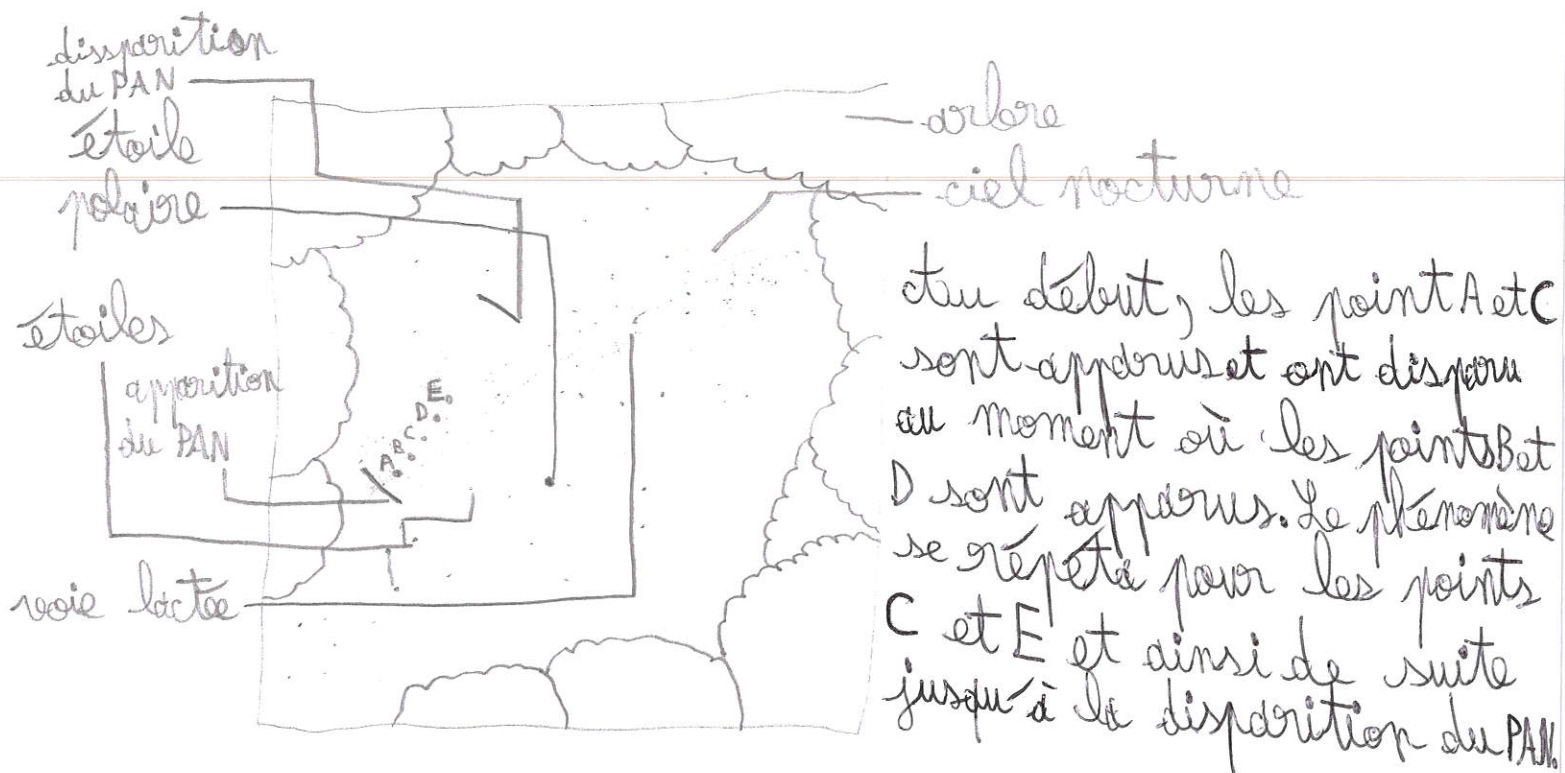 dissparition
du PAN
étoile
polaire
étoiles
apparition
du PAN
voie lactée
A. B. C. D. E.
arbre
ciel nocturne
Au début, les point A et C
sont apparus et ont disparu
au moment où les points B et
D sont apparus. Le phénomène
se répéta pour les points
C et E et ainsi de suite
jusqu'à la disparition du PAN.